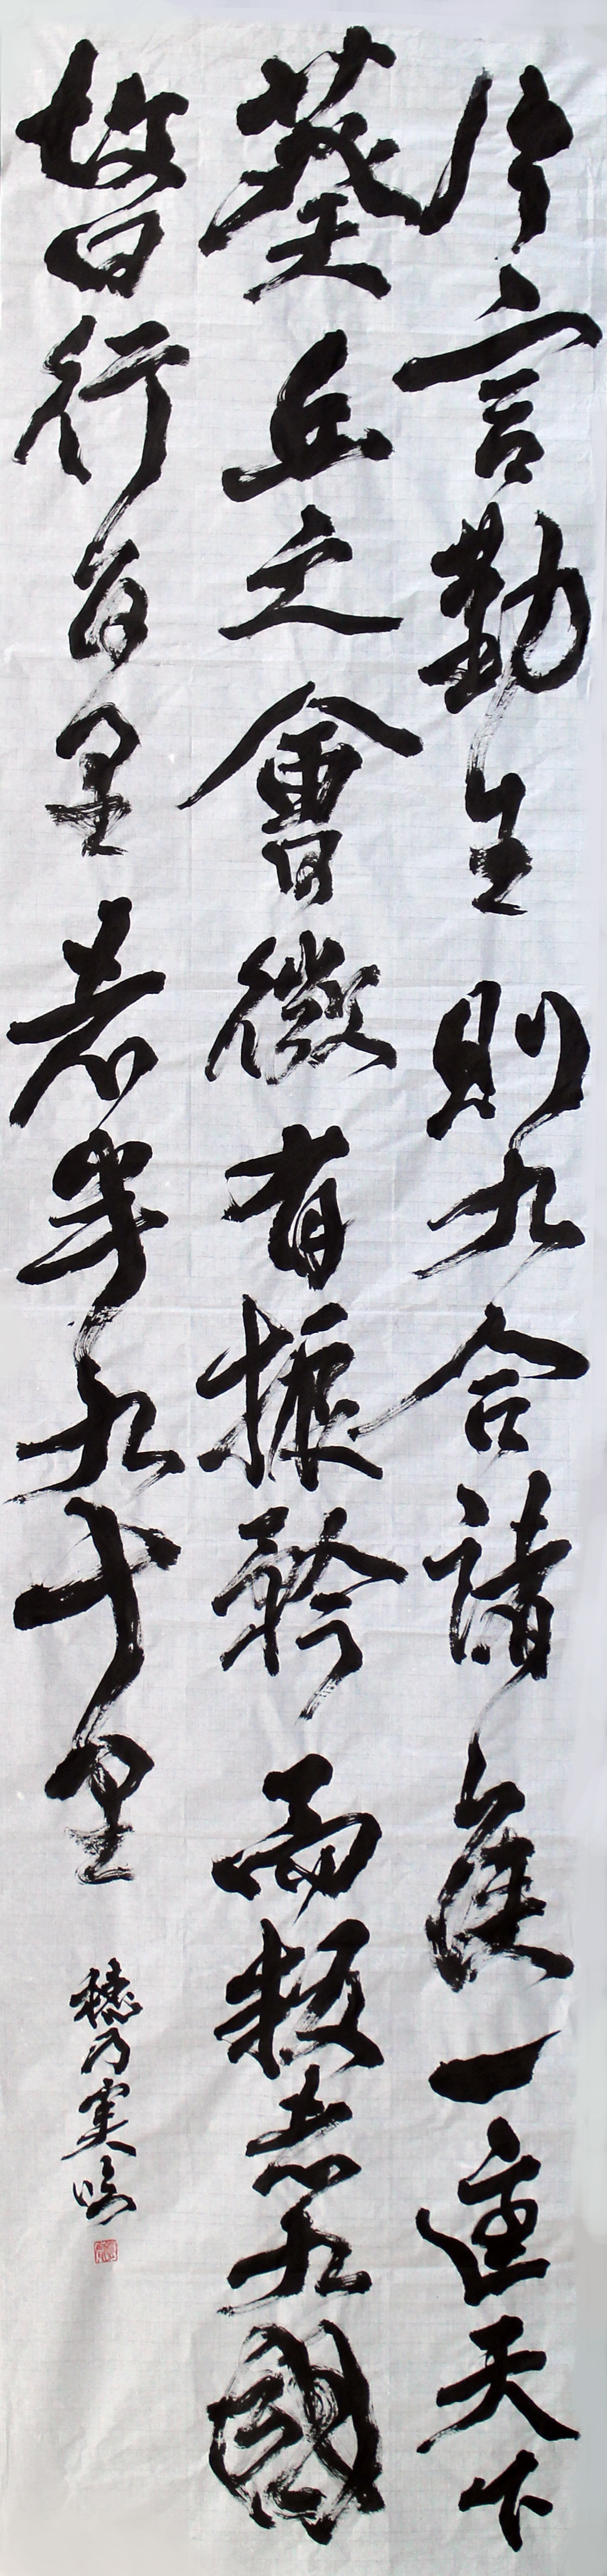 片言勤王則九合諸侯一匡天下
葵丘之會微有振矜而叛者九國
故曰行百里者半九十里
穂乃実臨